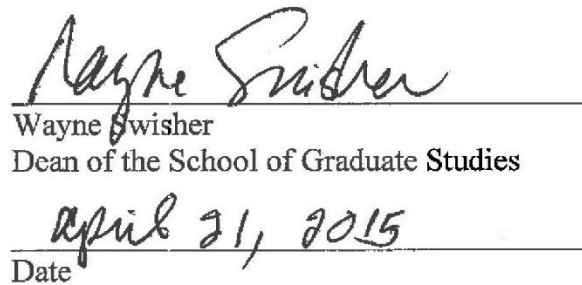 Wayne Swisher
Wayne Swisher
Dean of the School of Graduate Studies
April 21, 2015
Date